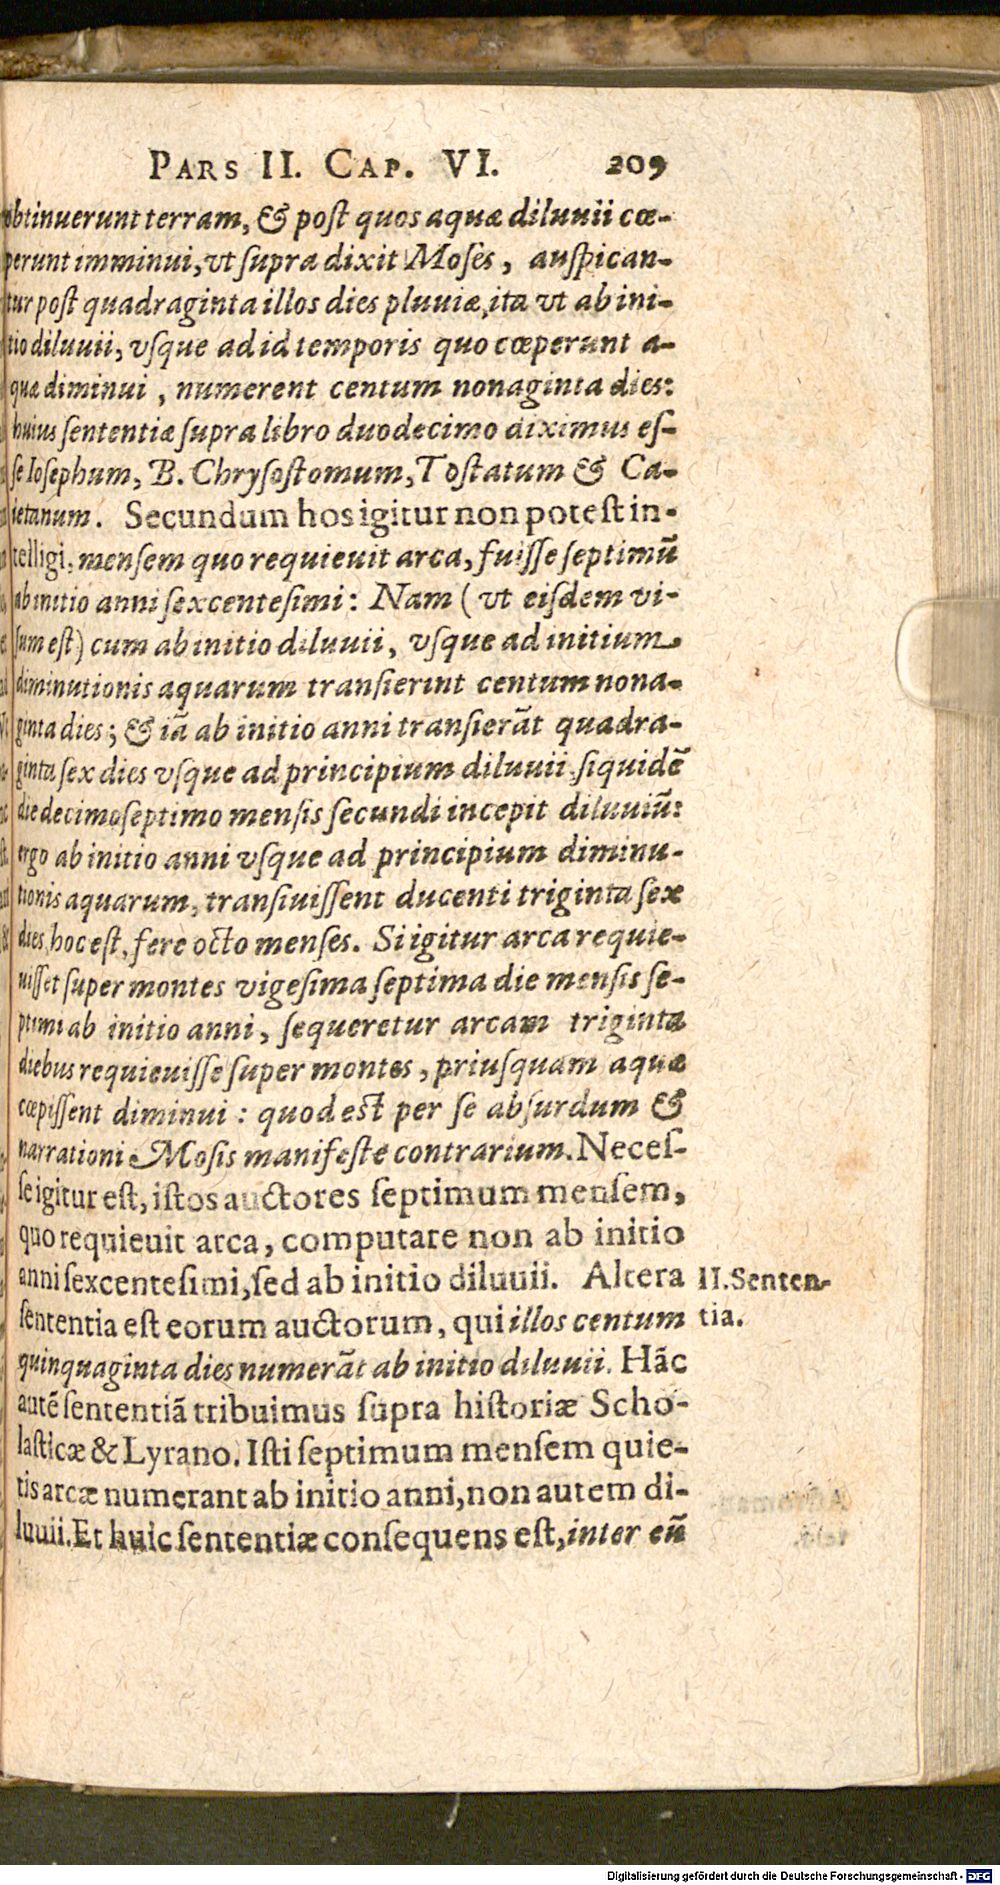 PARS II. CAP. VI. 209
obtinuerunt terram, & post quos aquæ diluuii cœ-
perunt imminui, vt supra dixit Moses, auspican-
tur post quadraginta illos dies pluuiæ, ita vt ab ini-
tio diluuii, vsque ad id temporis quo cœperunt a-
quæ diminui, numerent centum nonaginta dies:
huius sententiæ supra libro duodecimo diximus es-
se Iosephum, B. Chrysostomum, Tostatum & Ca-
ietanum. Secundum hos igitur non potest in-
telligi, mensem quo requieuit arca, fuisse septimũ
ab initio anni sexcentesimi: Nam (vt eisdem vi-
sum est) cum ab initio diluuii, vsque ad initium
diminutionis aquarum transierint centum nona-
ginta dies; & iã ab initio anni transierãt quadra-
ginta sex dies vsque ad principium diluuii, siquidẽ
die decimoseptimo mensis secundi incepit diluuiũ:
ergo ab initio anni vsque ad principium diminu-
tionis aquarum, transiuissent ducenti triginta sex
dies, hoc est, fere octo menses. Si igitur arca requie-
uisset super montes vigesima septima die mensis se-
ptimi ab initio anni, sequeretur arcam triginta
diebus requieuisse super montes, priusquam aquæ
cœpissent diminui: quod est per se absurdum &
narrationi Mosis manifeste contrarium. Neces-
se igitur est, istos auctores septimum mensem,
quo requieuit arca, computare non ab initio
anni sexcentesimi, sed ab initio diluuii. Altera
sententia est eorum auctorum, qui illos centum
quinquaginta dies numerãt ab initio diluuii. Hãc
autẽ sententiã tribuimus supra historiæ Scho-
lasticæ & Lyrano. Isti septimum mensem quie-
tis arcæ numerant ab initio anni, non autem di-
luuii. Et huic sententiæ consequens est, inter eũ
II. Senten-
tia.
Digitalisierung gefördert durch die Deutsche Forschungsgemeinschaft - DFG